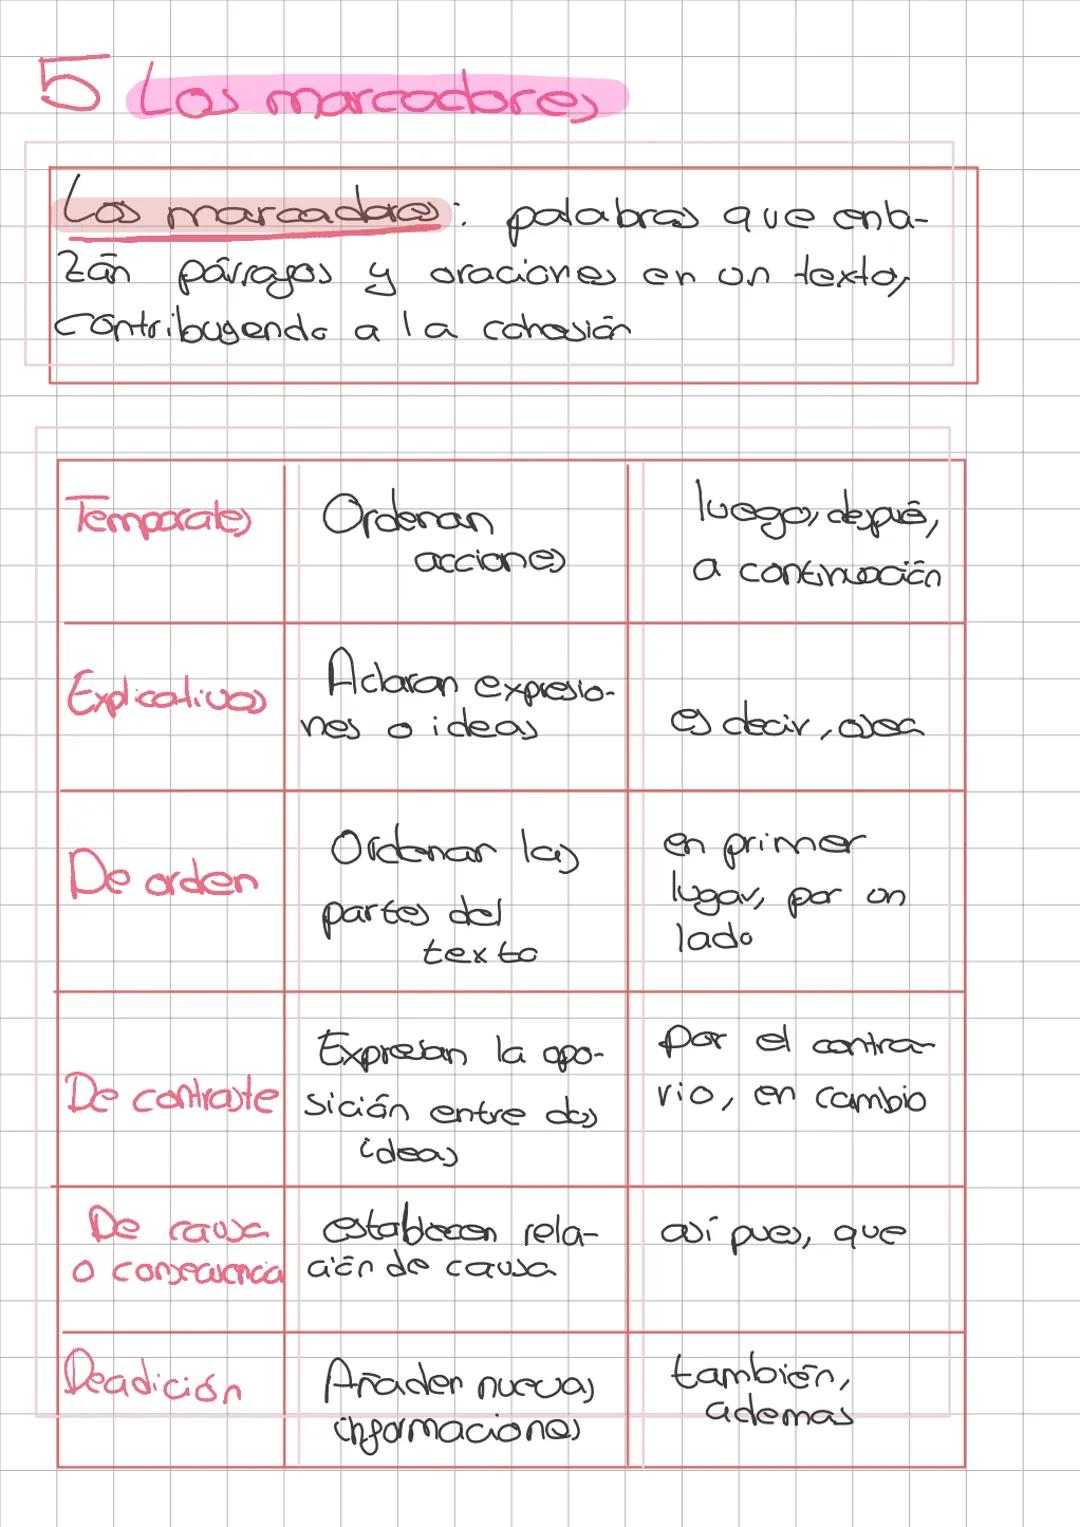 5 Los marcadores
Los marcadores: palabras que enla-
zán párrafos y oraciones en un texto,
contribuyendo a la cohesión
Temporales
Ordenan
acciones
luego, después,
a continuación
Explicativos
Aclaran expresio-
nes o ideas
es decir, osea
De orden
Ordenar las
partes del
texto
en primer
lugar, por un
lado
De contraste
Expresan la opo-
sición entre dos
ideas
Por el contra-
rio, en cambio
De causa
o consecuencia
establecen rela-
ación de causa
así pues, que
De adición
Añader nuevas
informaciones
también,
ademas